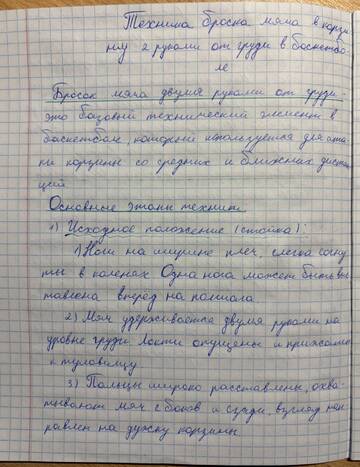 Техника броска мяча в корзи
ну 2 руками от груди в баскетбо-
ле
Бросок мяча двумя руками от груди-
это базовый технический элемент в
баскетболе, который используется для ата
ки корзины со средних и ближних дистан
ций
Основные этапы техники
1) Исходное положение (стойка):
1) Ноги на ширине плеч, слегка согну
ты в коленях Одна нога может быть выс
тавлена вперёд на полшага
2) Мяч удерживается двумя руками на
уровне груди Локти опущены и прижаты
к туловищу
3) Пальцы широко расставлены, охва-
тывают мяч с боков и сзади, взгляд нап
равлен на дужку корзины